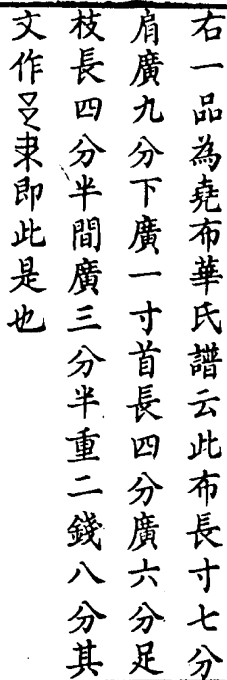 右一品為堯布華氏譜云此布長寸七分
肩廣九分下廣一寸首長四分廣六分足
枝長四分半間廣三分半重二錢八分其
文作即此是也